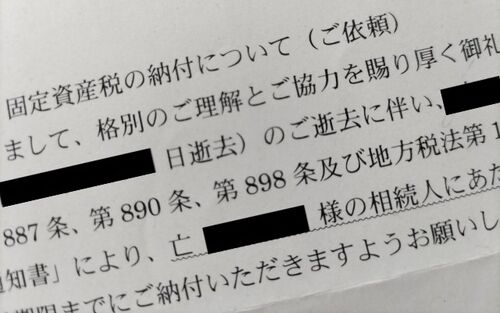 固定資産税の納付について（ご依頼）
まして、格別のご理解とご協力を賜り厚く御礼
日逝去）のご逝去に伴い、
887 条、第 890 条、第 898 条及び地方税法第 1
知書」により、亡 様の相続人にあた
期限までにご納付いただきますようお願いし